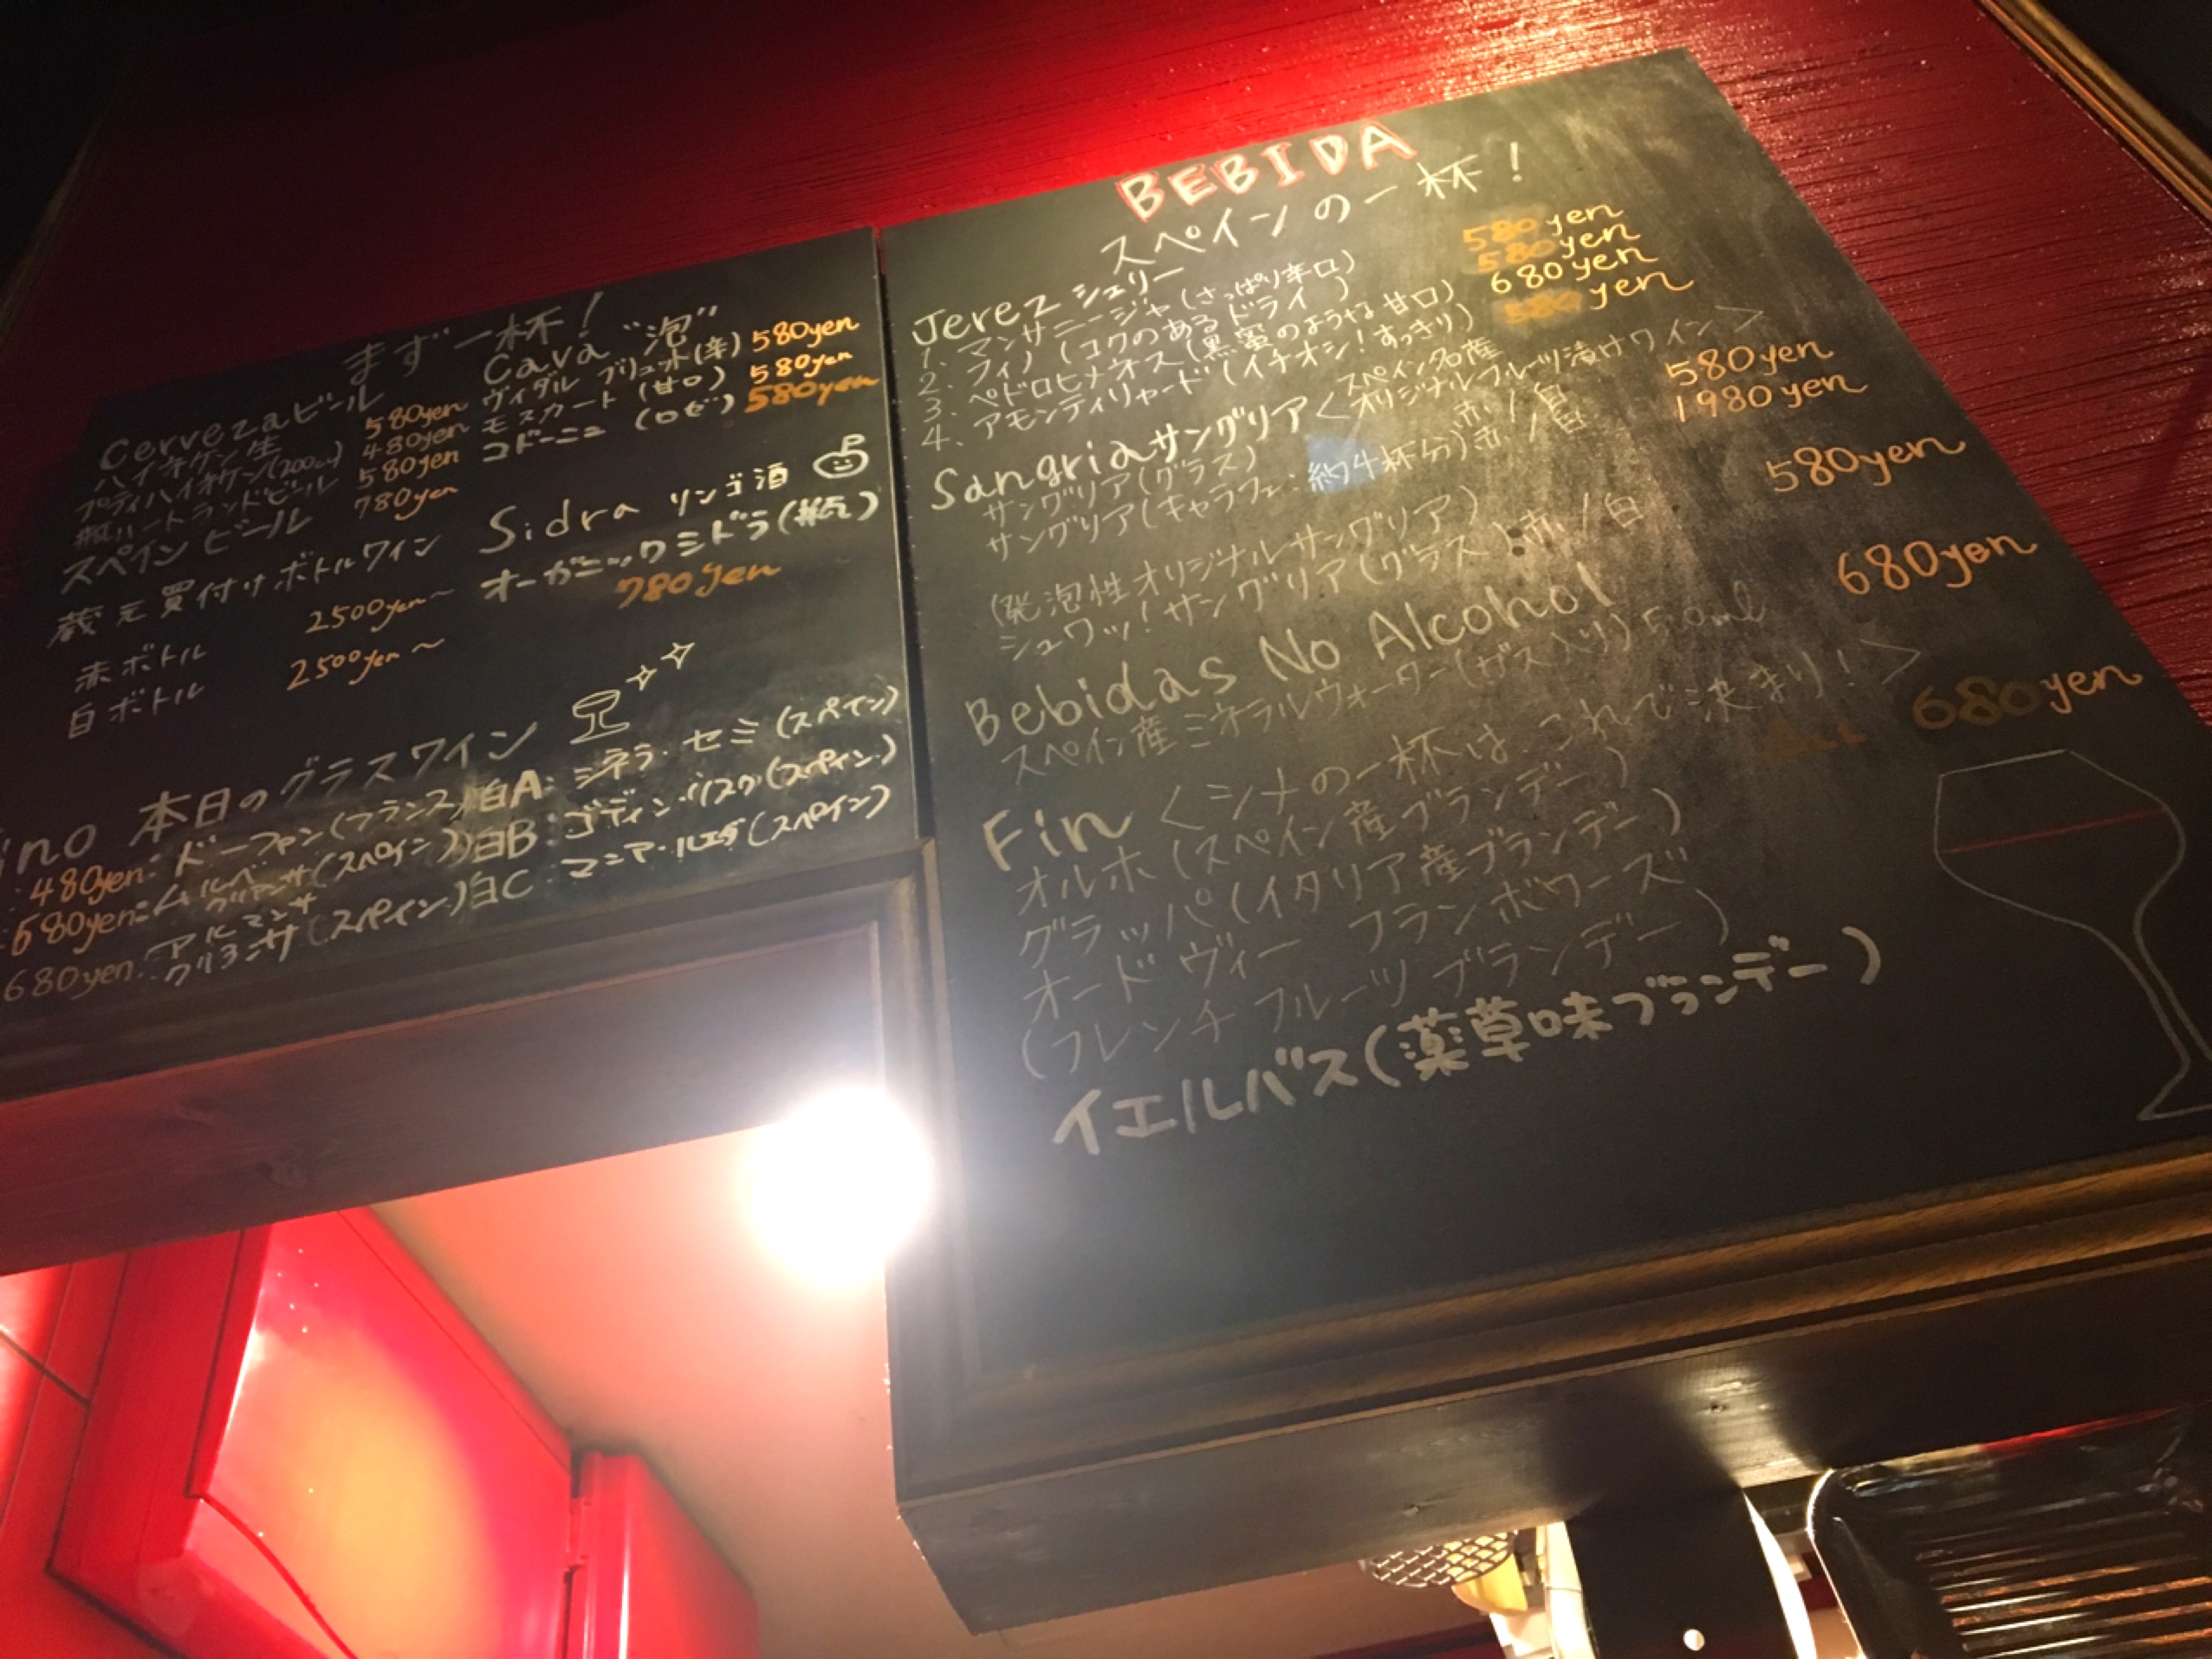 まず一杯!
Cervezaビール
ハイネケン生 580yen
プティハイネケン(200cc) 480yen
瓶ハートランドビール 580yen
スペインビール 780yen
蔵元買付けボトルワイン
赤ボトル 2500yen～
白ボトル 2500yen～
Cava "泡"
ヴィダル ブリュット(辛) 580yen
モスカート(甘口) 580yen
コドーニュ(ロゼ) 580yen
Sidra リンゴ酒
オーガニックシドラ(瓶)
780yen
ino 本日のグラスワイン
480yen: ドーファン(フランス) 白A: シネラ・セミ(スペイン)
580yen: (スペイン) 白B: ゴディン (スペイン)
680yen: アルマンサ クリアンサ(スペイン) 白C: (スペイン)
BEBIDA
スペインの一杯!
Jerez シェリー
1. マンサニージャ(さっぱり辛口) 580yen
2. フィノ(コクのあるドライ) 580yen
3. ペドロヒメネス(黒蜜のような甘口) 680yen
4. アモンティリャード(イチオシ!すっきり) 580yen
Sangriaサングリア<スペイン名産 オリジナルフルーツ漬けワイン>
サングリア(グラス) 赤/白 580yen
サングリア(キャラフェ:約4杯分)赤/白 1980yen
(発泡性オリジナルサングリア)
シュワッ!サングリア(グラス)赤/白 580yen
Bebidas No Alcohol
スペイン産ミネラルウォーター(ガス入り) 680yen
Fin <シメの一杯は、これで決まり!>
オルホ(スペイン産ブランデー) 680yen
グラッパ(イタリア産ブランデー)
オードヴィー フランボワーズ
(フレンチフルーツブランデー)
イエルバス(薬草味ブランデー)